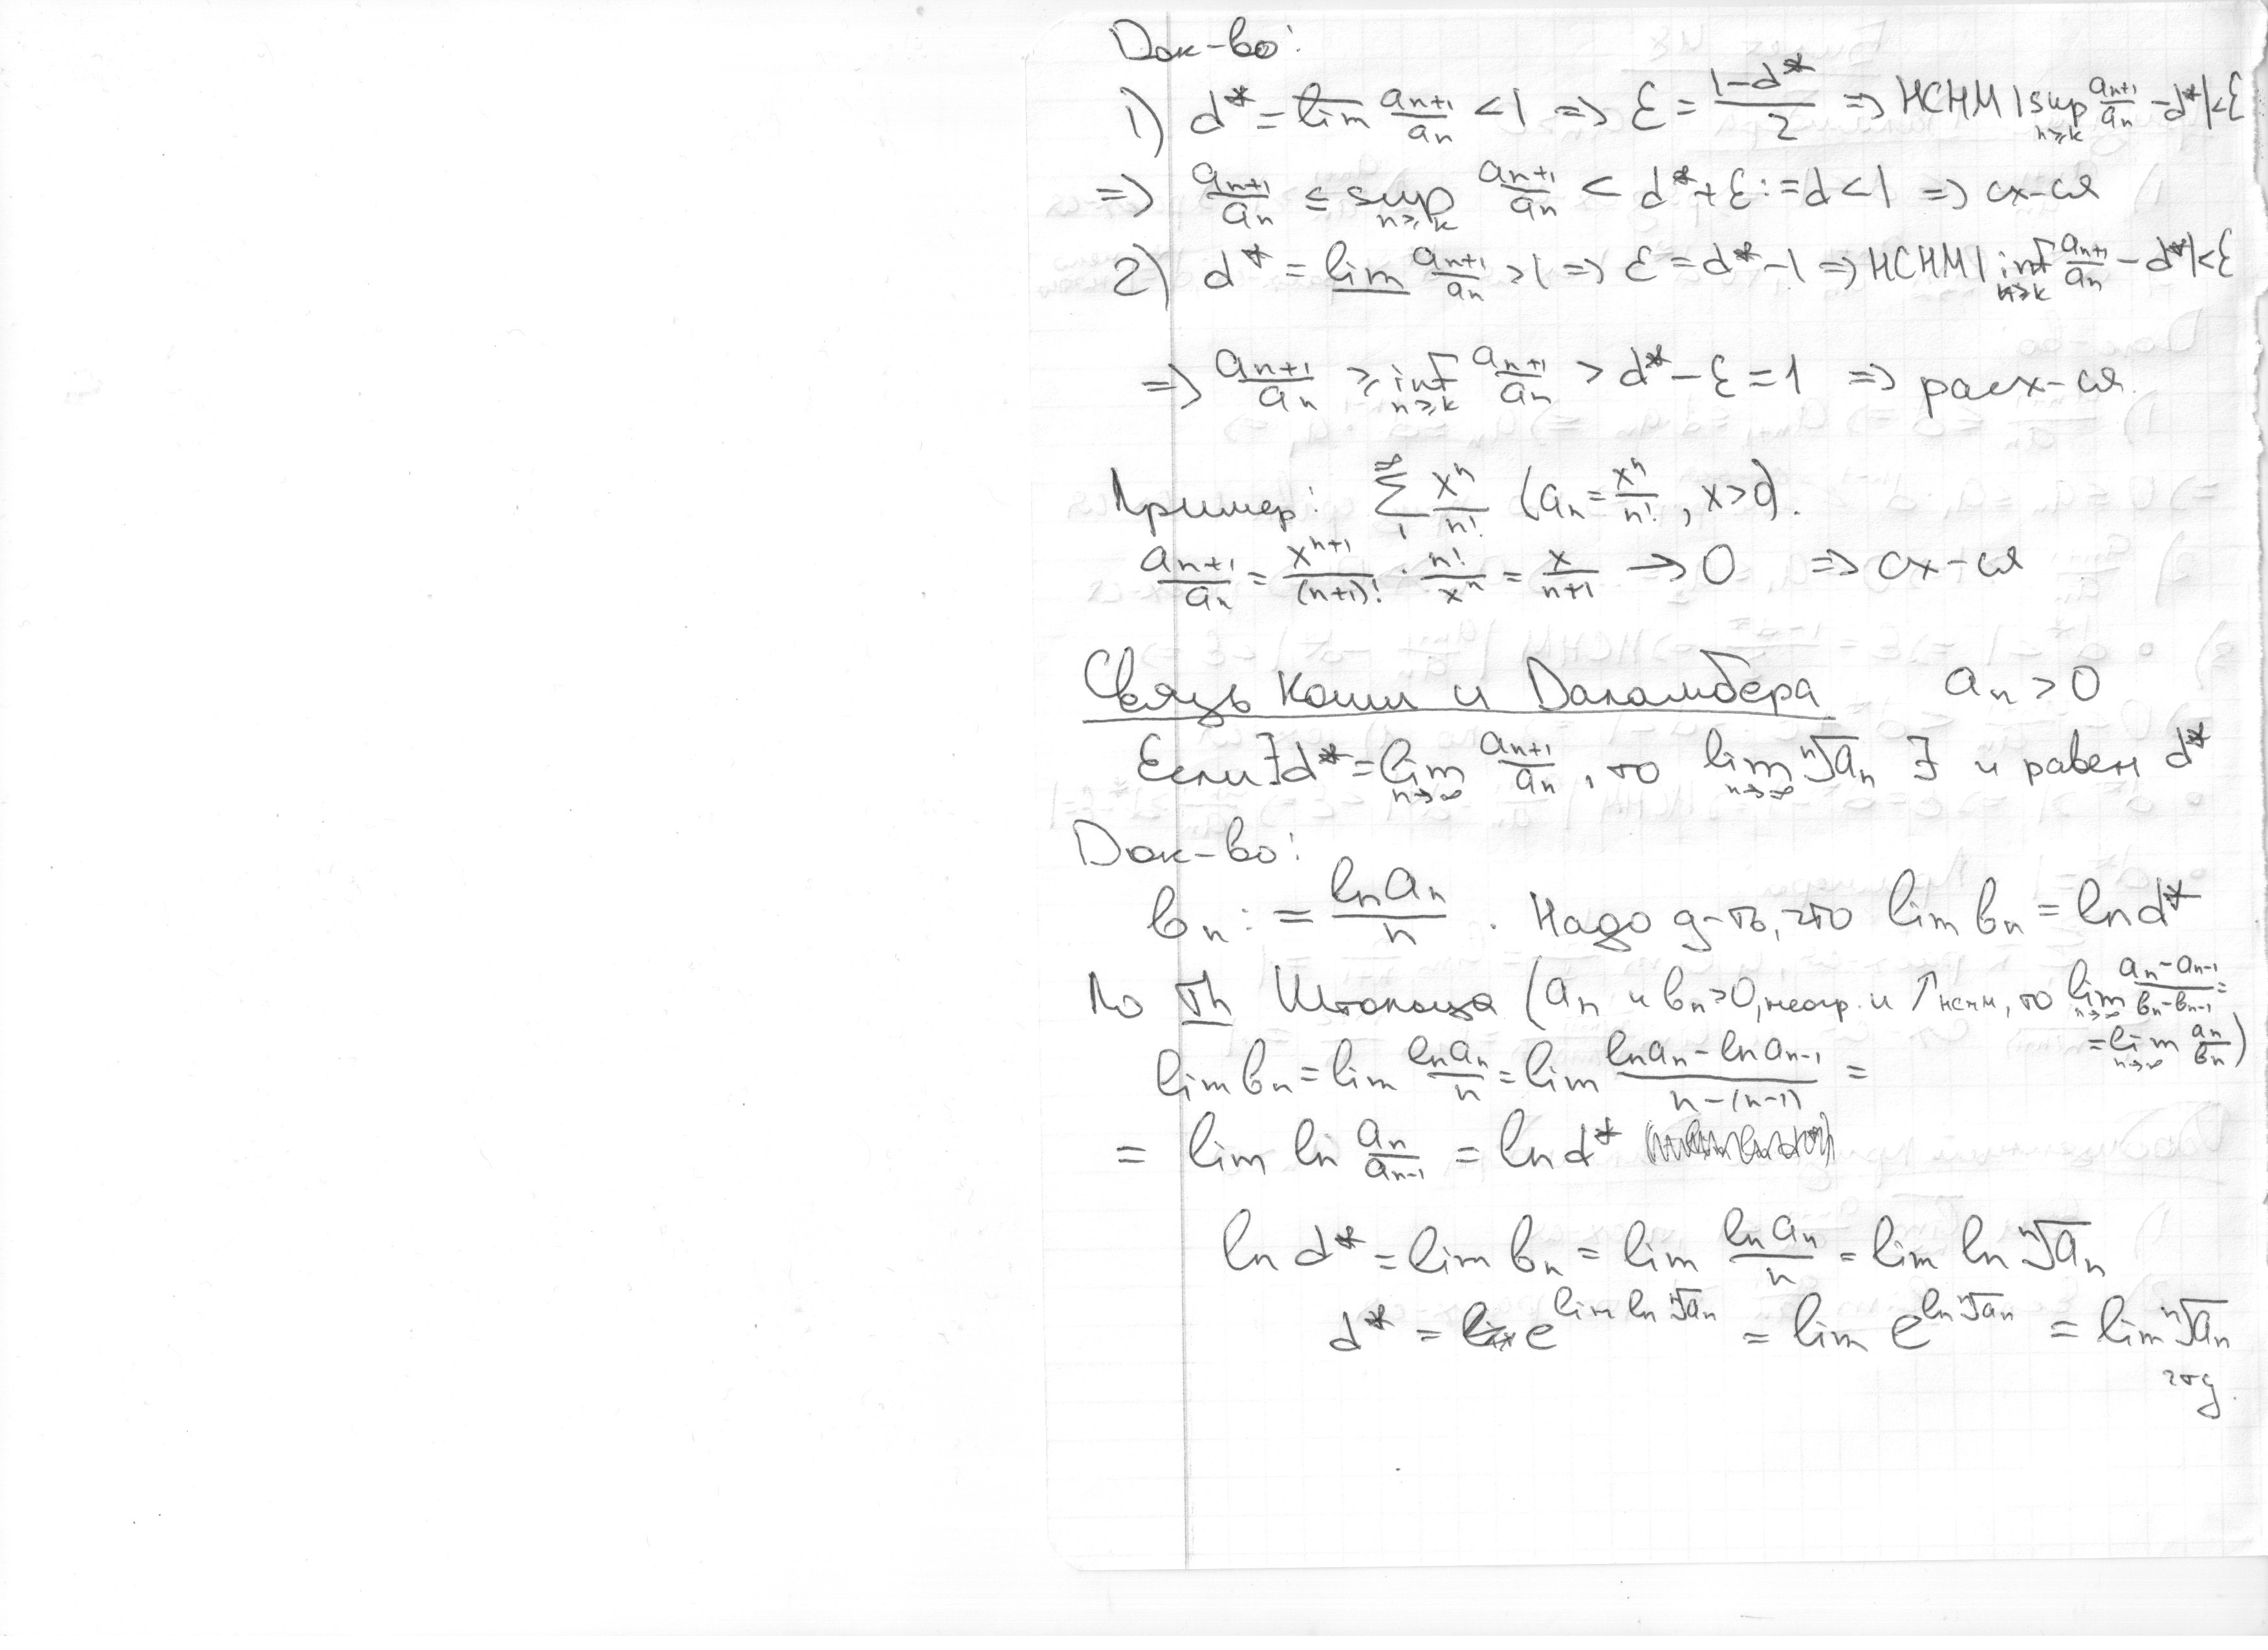 Док-во:
1) d* = lim̅ aₙ₊₁/aₙ < 1 => ε = (1-d*)/2 => НСНМ |sup_{n≥k} aₙ₊₁/aₙ - d*| < ε
=> aₙ₊₁/aₙ ≤ sup_{n≥k} aₙ₊₁/aₙ < d* + ε := d < 1 => сх-ся
2) d* = l̲i̲m̲ aₙ₊₁/aₙ > 1 => ε = d* - 1 => НСНМ | inf_{n≥k} aₙ₊₁/aₙ - d*| < ε
=> aₙ₊₁/aₙ ≥ inf_{n≥k} aₙ₊₁/aₙ > d* - ε = 1 => расх-ся.
Пример: ∑₁^∞ xⁿ/n! (aₙ = xⁿ/n!, x>0).
aₙ₊₁/aₙ = xⁿ⁺¹/(n+1)! · n!/xⁿ = x/(n+1) → 0 => сх-ся
Связь Коши и Даламбера aₙ > 0
Если ∃d* = lim_{n→∞} aₙ₊₁/aₙ, то lim_{n→∞} ⁿ√aₙ ∃ и равен d*
Док-во:
bₙ := ln aₙ/n. Надо д-ть, что lim bₙ = ln d*
По Th Штольца (aₙ и bₙ>0, неогр. и ↑ нснм, то lim_{n→∞} (aₙ-aₙ₋₁)/(bₙ-bₙ₋₁) =
= lim_{n→∞} aₙ/bₙ)
lim bₙ = lim ln aₙ/n = lim (ln aₙ - ln aₙ₋₁)/(n-(n-1)) =
= lim ln aₙ/aₙ₋₁ = ln d*
ln d* = lim bₙ = lim ln aₙ/n = lim ln ⁿ√aₙ
d* = e^{lim ln ⁿ√aₙ} = lim e^{ln ⁿ√aₙ} = lim ⁿ√aₙ
чтд.